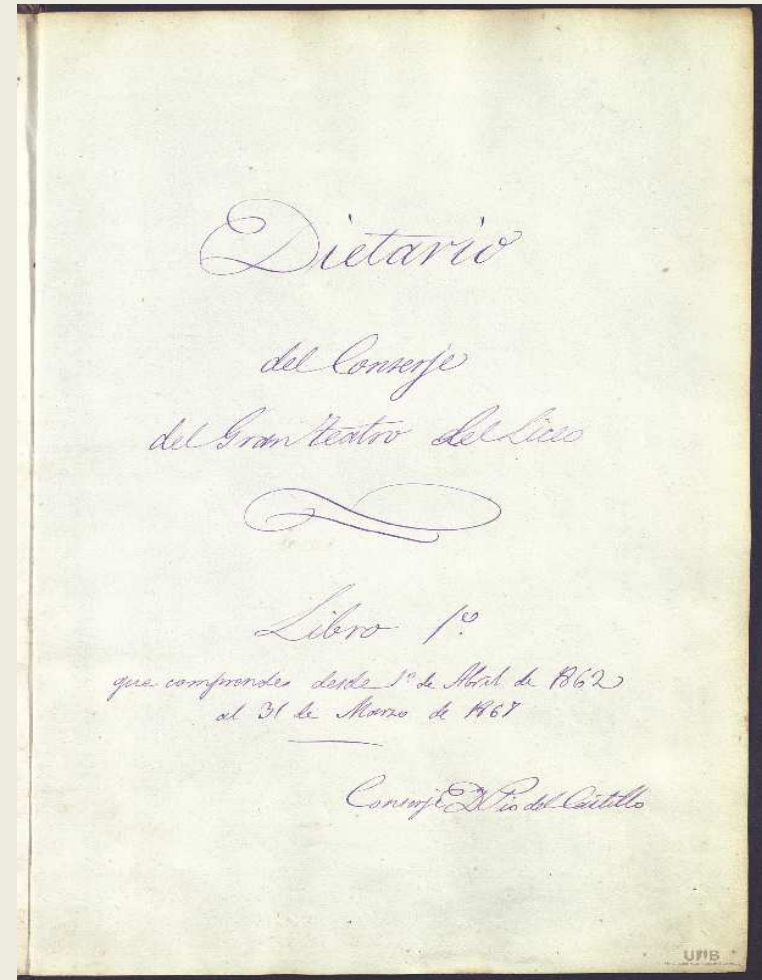 Dietario
del Conserje
del Gran teatro del Liceo
Libro 1º
que comprende desde 1º de Abril de 1862
al 31 de Marzo de 1867
Conserje D. Pio del Castillo
UAB